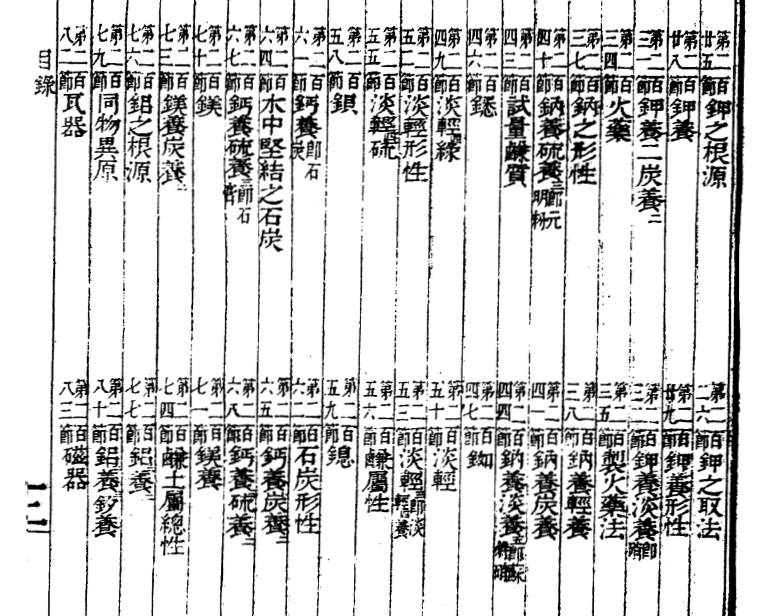 第二百廿五節 鉀之根源
第二百二六節 鉀之取法
第二百廿八節 鉀養
第二百廿九節 鉀養形性
第二百三一節 鉀養二炭養二
第二百三二節 鉀養淡養 即硝
第二百三四節 火藥
第二百三五節 製火藥法
第二百三七節 鈉之形性
第二百三八節 鈉養輕養
第二百四十節 鈉養硫養三 即元明粉
第二百四一節 鈉養炭養
第二百四三節 試量鹻質
第二百四四節 鈉養淡養五
第二百四六節
第二百四七節
第二百四九節 淡輕綠
第二百五十節 淡輕
第二百五二節 淡輕形性
第二百五三節 淡輕
第二百五五節 淡輕硫
第二百五六節 鹻屬性
第二百五八節 鋇
第二百五九節 鎴
第二百六一節 鈣養 即石炭
第二百六二節 石炭形性
第二百六四節 水中堅結之石炭
第二百六五節 鈣養炭養二
第二百六七節 鈣養硫養三 即石膏
第二百六八節 鈣養硫養二
第二百七十節 鎂
第二百七一節 鎂養
第二百七三節 鎂養炭養二
第二百七四節 鹻土屬總性
第二百七六節 鋁之根源
第二百七七節 鋁養
第二百七九節 同物異原
第二百八十節 鋁養矽養
第二百八二節 瓦器
第二百八三節 磁器
目錄
十二